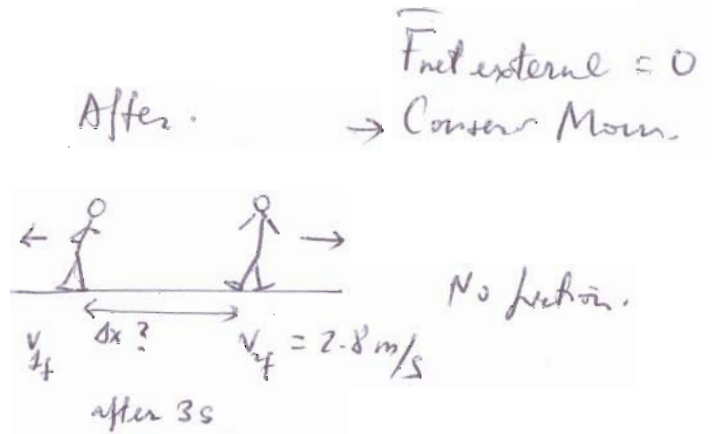 Fnet external = 0
After.
→ Conserv Mom.
No friction.
Δx ?
V1f
V2f = 2.8 m/s
after 3s